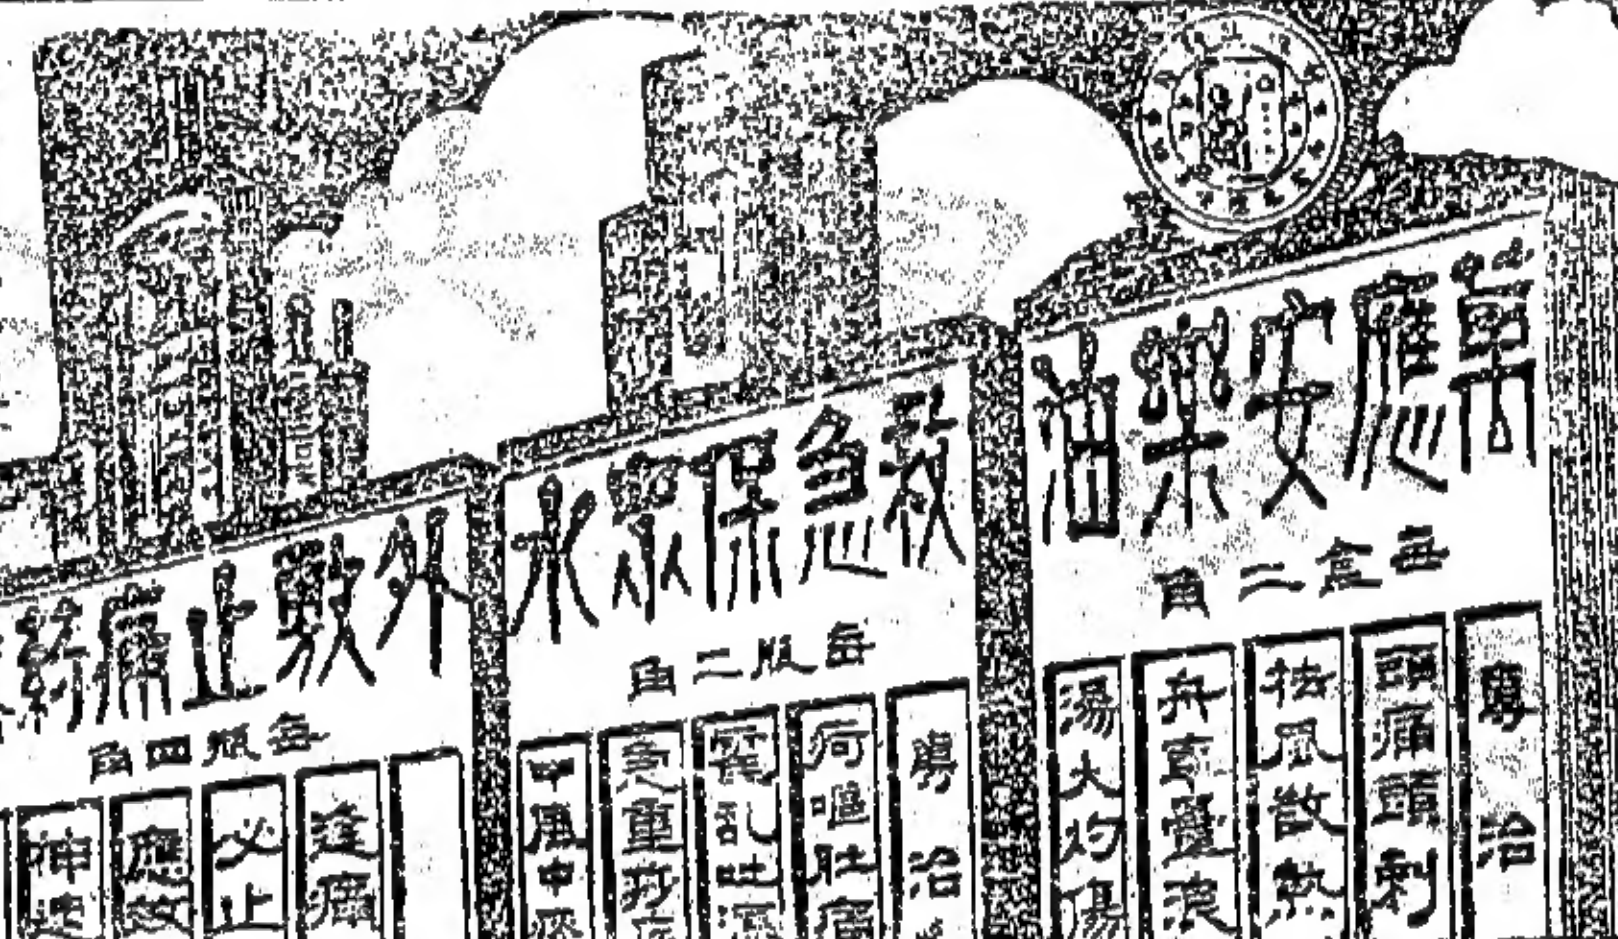 萬應安樂油
每盒二角
專治
頭痛頭刺
祛風散熱
舟車暈浪
湯火灼傷
救急保眾水
每瓶二角
專治
疴嘔肚痛
霍亂吐瀉
急重痧症
中風中痰
外敷止痛藥
每瓶四角
逢痛
必止
應效
神速